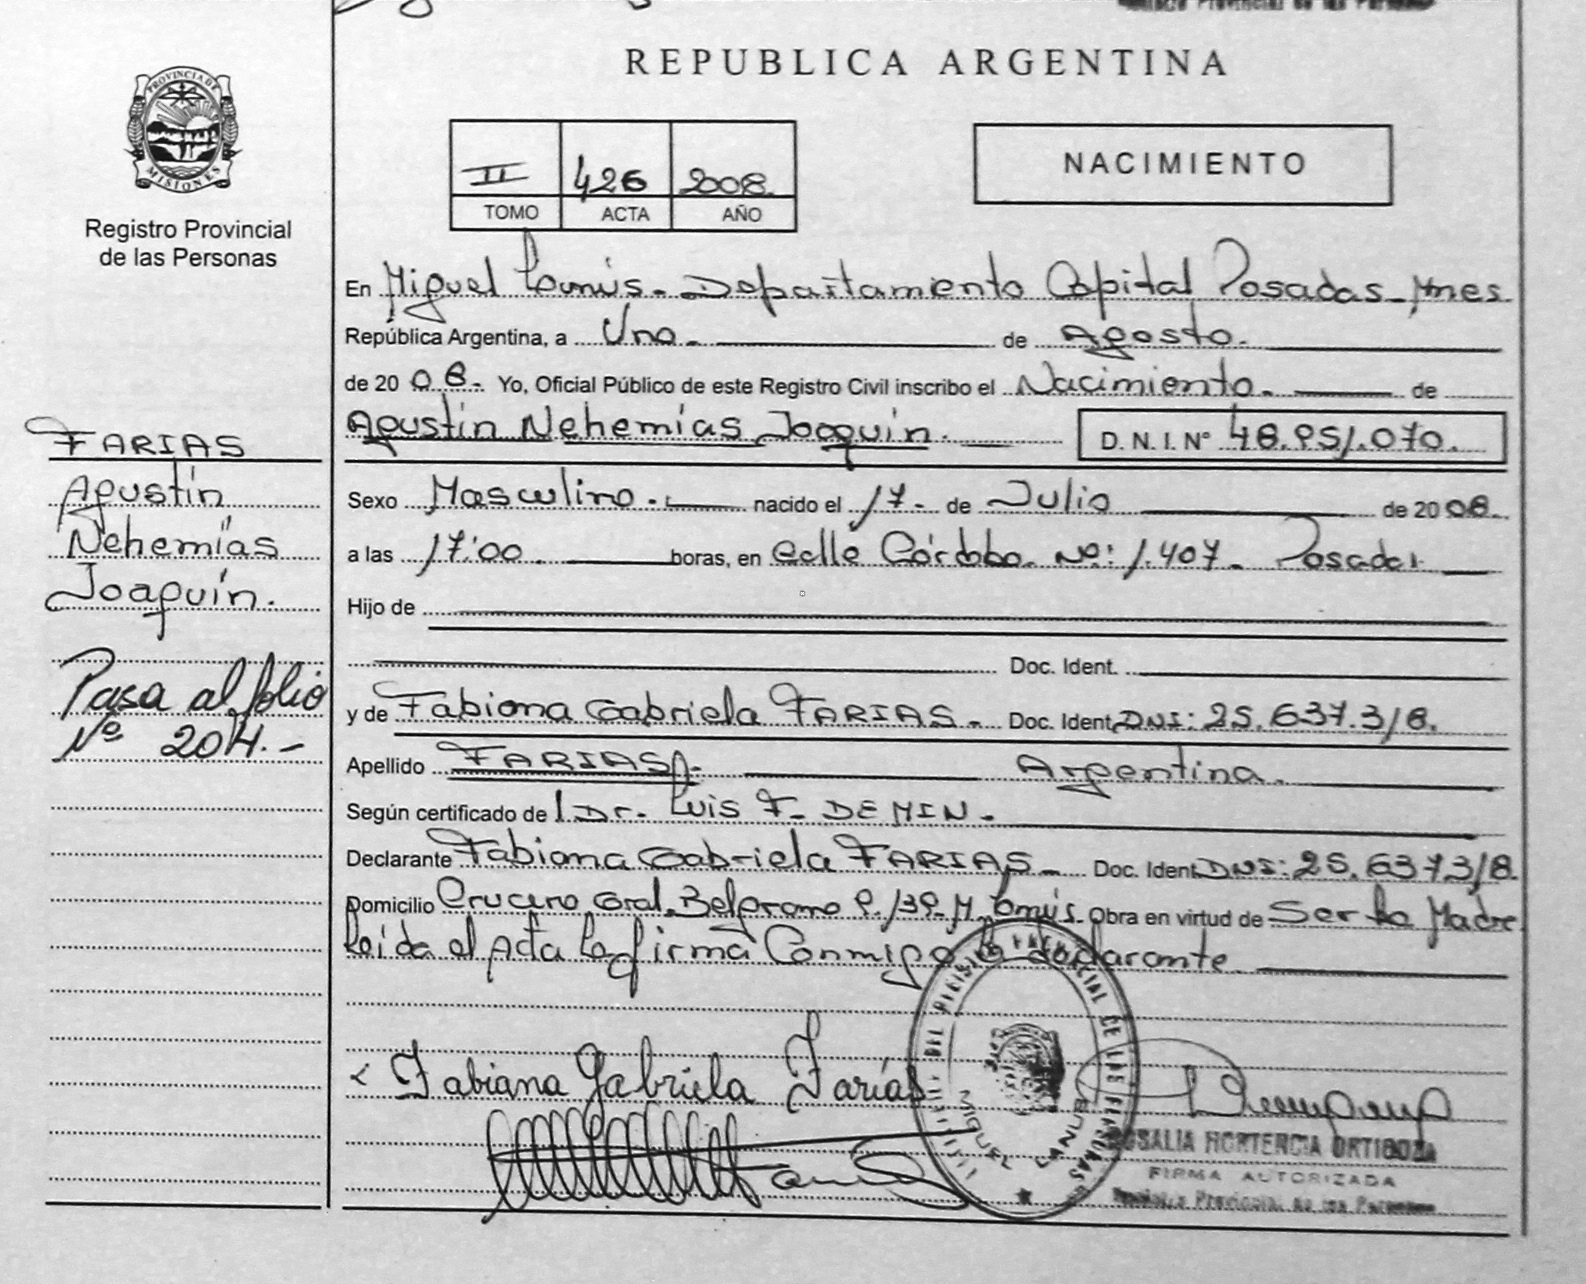 REPUBLICA ARGENTINA
PROVINCIA DE
MISIONES
Registro Provincial
de las Personas
II 426 2008
TOMO ACTA AÑO
NACIMIENTO
En Miguel Lanús - Departamento Capital Posadas - Mnes
República Argentina, a Uno. de Agosto.
de 2008. Yo, Oficial Público de este Registro Civil inscribo el Nacimiento. de
Agustín Nehemías Joaquín. D. N. I. N° 48.951.070.
FARIAS
Agustín
Nehemías
Joaquín.
Pasa al folio
Nº 204.-
Sexo Masculino. nacido el 17 de Julio de 2008.
a las 17:00 horas, en Calle Córdoba Nº: 1.407 - Posadas
Hijo de
Doc. Ident.
y de Fabiana Gabriela FARIAS - Doc. Ident. DNI: 25.637.318.
Apellido FARIAS. Argentina.
Según certificado de l Dr. Luis F. DEMIN.
Declarante Fabiana Gabriela FARIAS - Doc. Ident. DNI: 25.637318.
Domicilio Crucero Gral. Belgrano P. 139 - M. Lanús. Obra en virtud de Ser la Madre
Leída el Acta la firma Conmigo la declarante
Fabiana Gabriela Farías
MIGUEL LANUS
ROSALIA HORTENCIA ORTIGOZA
FIRMA AUTORIZADA
Registro Provincial de las Personas